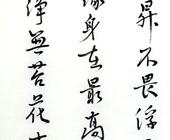 昇不畏浮
緣身在最高
淨無苔花